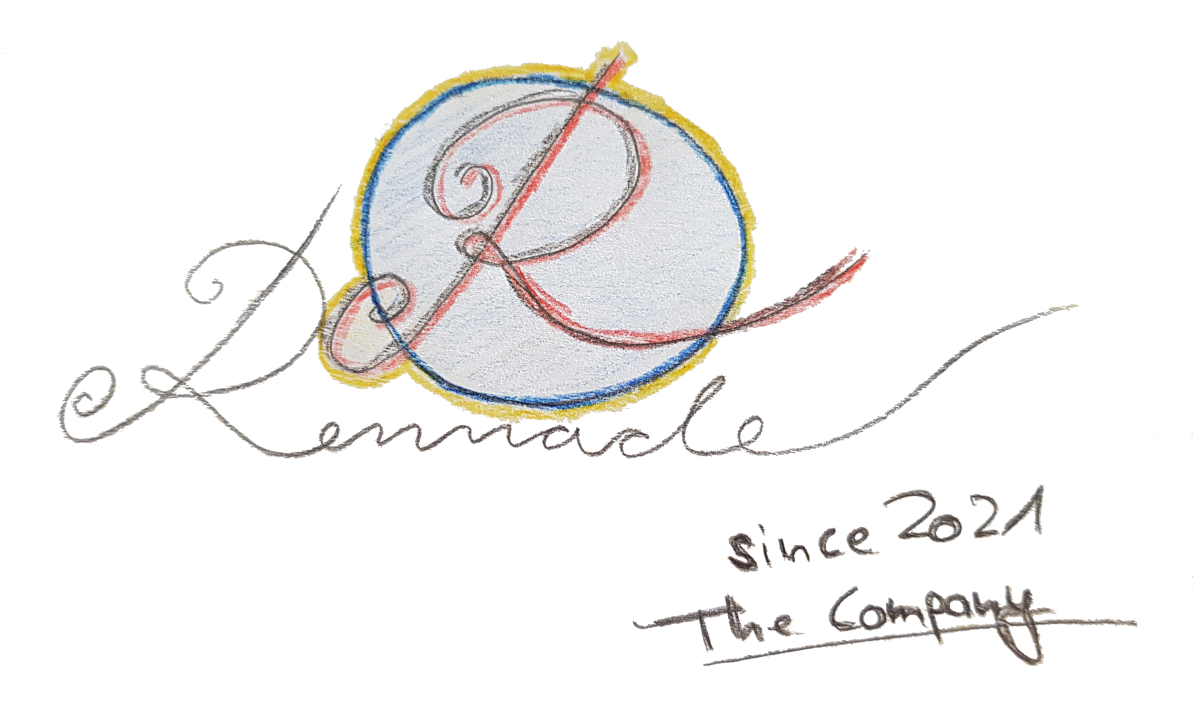 R
Rennade
since 2021
The Company